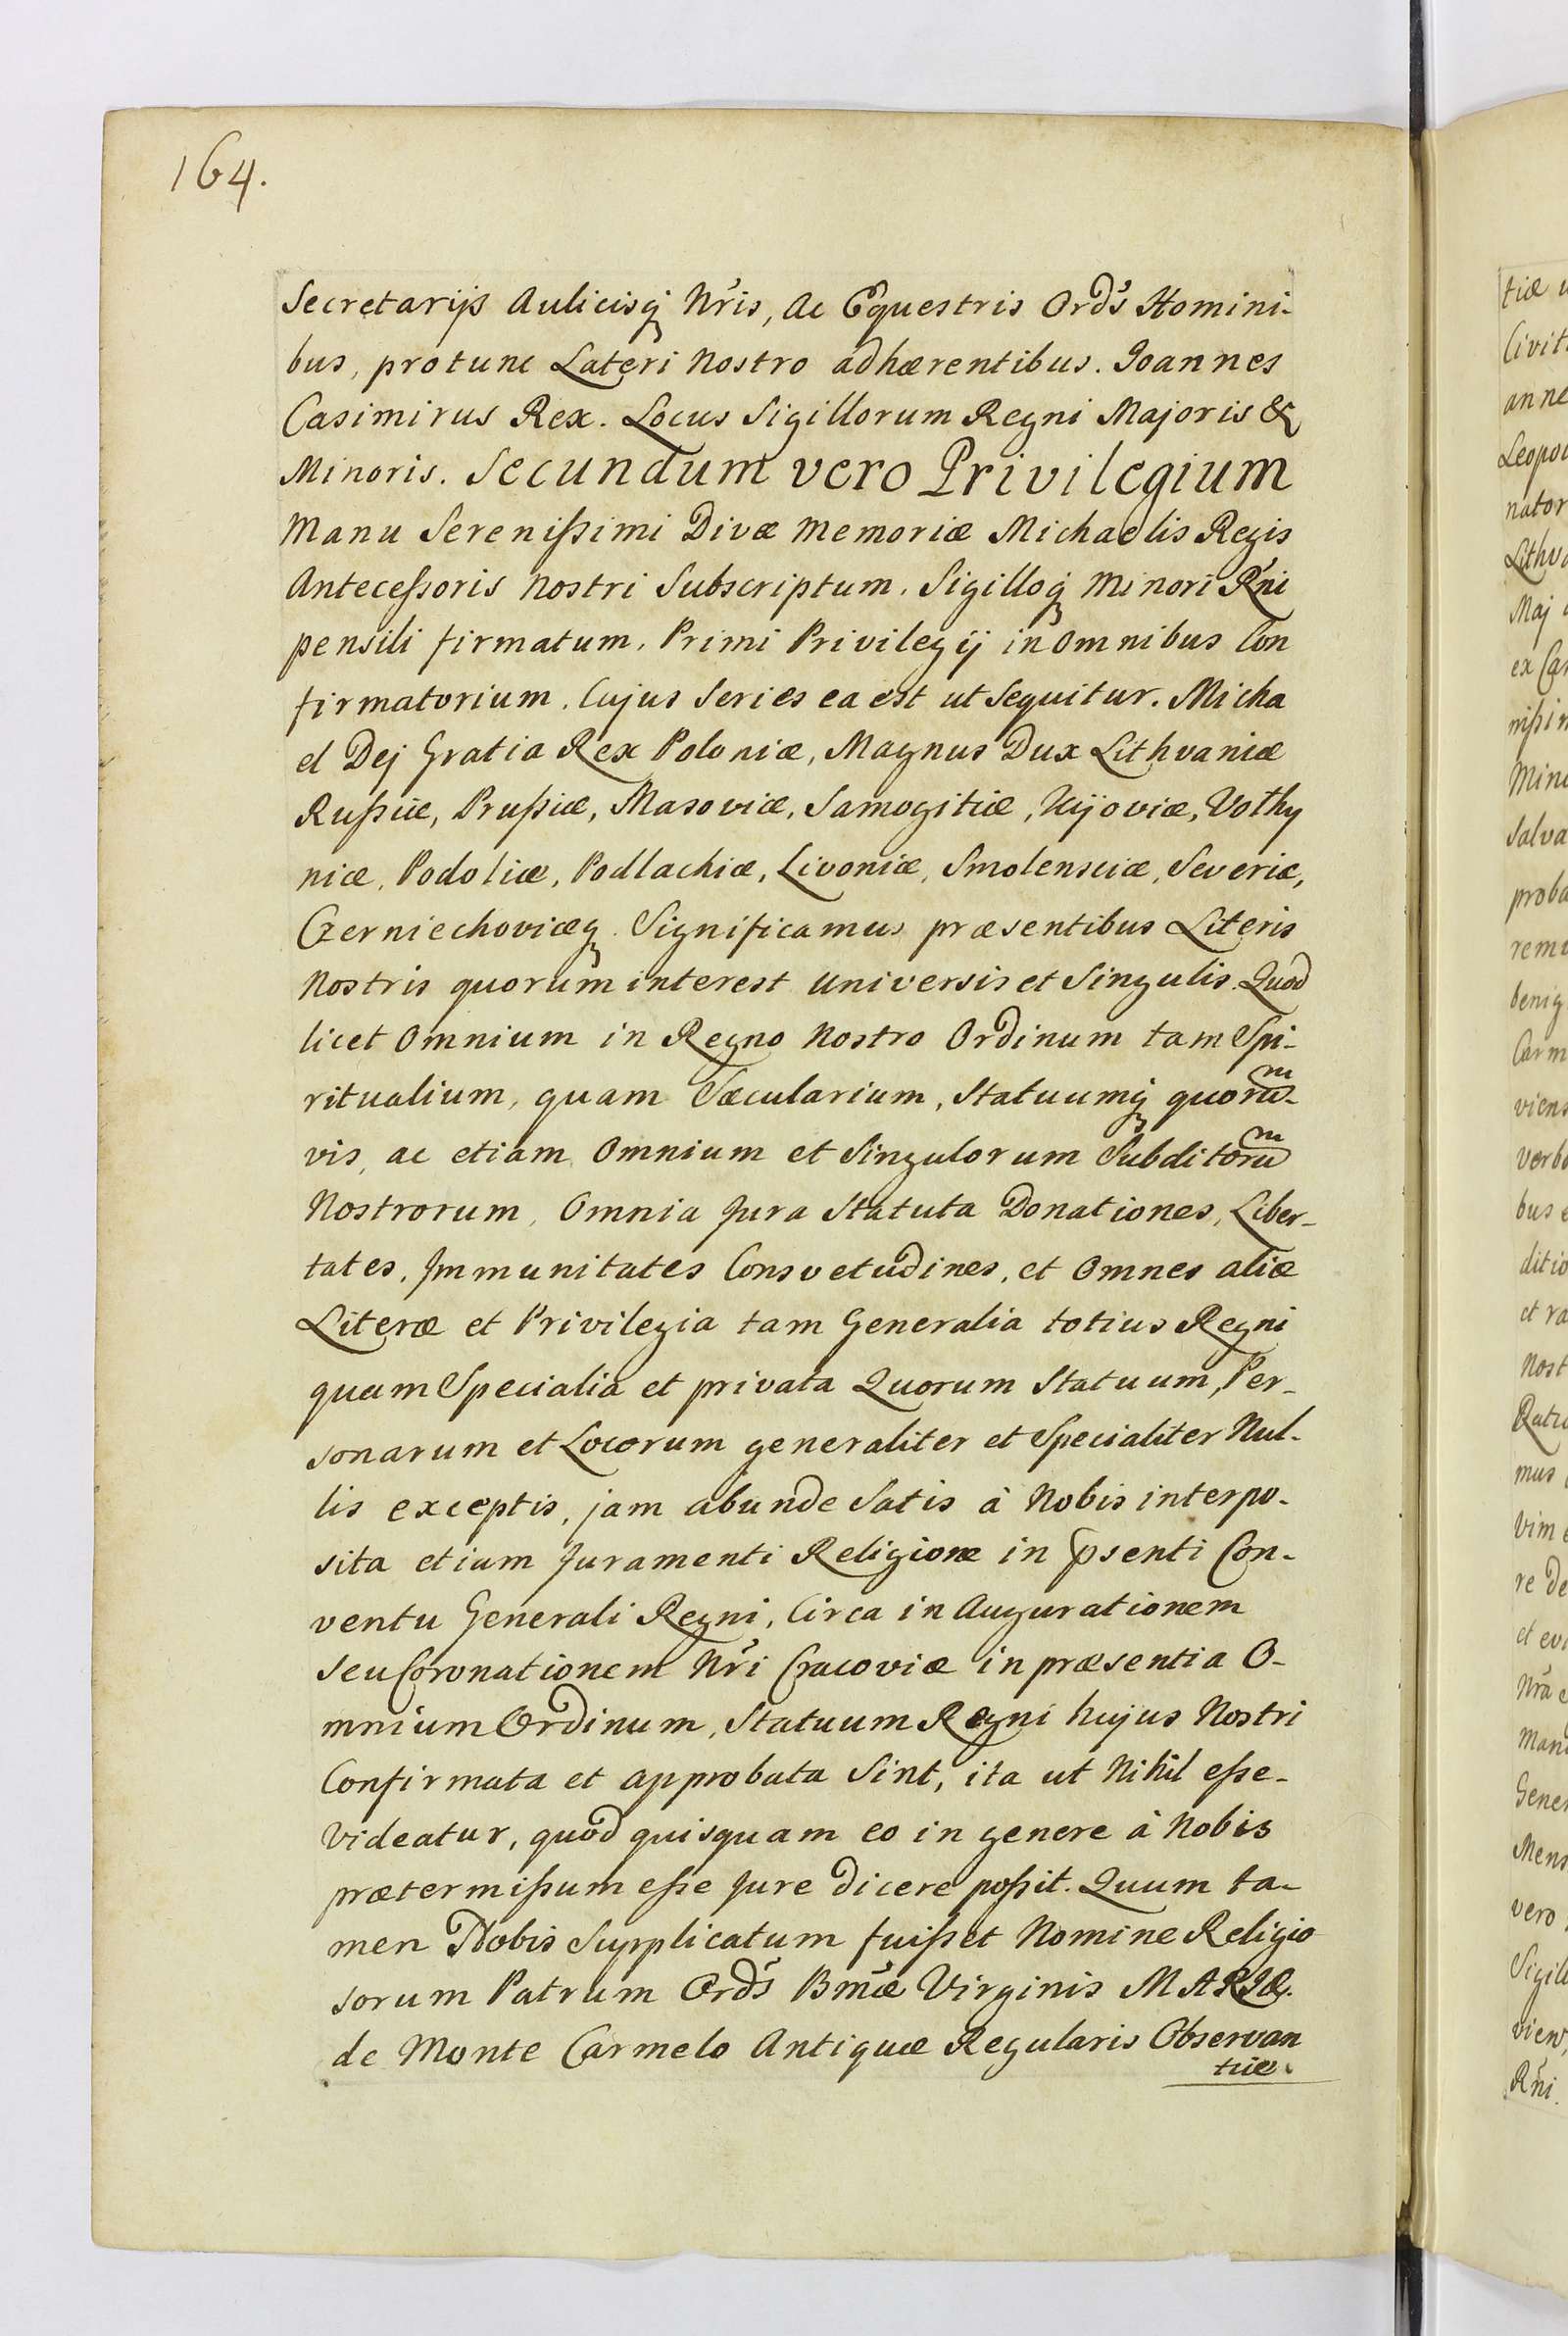 164.
Secretarijs Aulicisq3 Nr̃is, ac Equestris Ord̃s Homini-
bus, protunc Lateri Nostro adhærentibus. Joannes
Casimirus Rex. Locus Sigillorum Regni Majoris &
Minoris. Secundum vero Privilegium
Manu Serenißimi Divæ Memoriæ Michaelis Regis
Anteceßoris Nostri Subscriptum. Sigilloq3 Minori Rñi
pensili firmatum. Primi Privilegij in omnibus Con
firmatorium. Cujus Series ea est ut Sequitur. Micha
el Dej Gratia Rex Poloniæ, Magnus Dux Lithvaniæ
Rußiæ, Prußiæ, Masoviæ, Samogitiæ, Kijoviæ, Volhy
niæ, Podoliæ, Podlachiæ, Livoniæ, Smolensciæ, Severiæ,
Czerniechoviæq3. Significamus præsentibus Literis
Nostris quorum interest universis et Singulis. Quod
licet Omnium in Regno Nostro Ordinum tam Spi-
ritualium, quam Sæcularium, Statuumq3 quorum-
vis, ac etiam Omnium et Singulorum Subditorum
Nostrorum, Omnia Jura Statuta Donationes, Liber-
tates, Jmmunitates Consvetudines, et Omnes aliæ
Literæ et Privilegia tam Generalia totius Regni
quam Specialia et privata Quorum Statuum, Per-
sonarum et Locorum generaliter et Specialiter Nul-
lis exceptis, jam abunde Satis à Nobis interpo-
sita etiam Juramenti Religione in p̃senti Con-
ventu Generali Regni, Circa in Augurationem
seu Coronationem Nr̃i Cracoviæ in præsentia O-
mnium Ordinum, Statuum Regni hujus Nostri
Confirmata et approbata Sint, ita ut Nihil eße-
videatur, quod quisquam eo in genere à Nobis
prætermißum eße Jure dicere poßit. Quum ta-
men Nobis Supplicatum fuißet Nomine Religio
sorum Patrum Ord̃s Bm̃æ Virginis MARIÆ.
de Monte Carmelo Antiquæ Regularis Observan
tiæ.
tiæ
Civit
anne
Leopo
nator
Lithv
Maj
ex Car
nißi
Min
Salva
proba
rem
benig
Carm
viens
verb
bus
ditio
et ra
Nost
Ratu
mus
vim
re de
et ev
Nr̃a
Man
Gene
Mens
vero
Sigil
vien
Rñi.